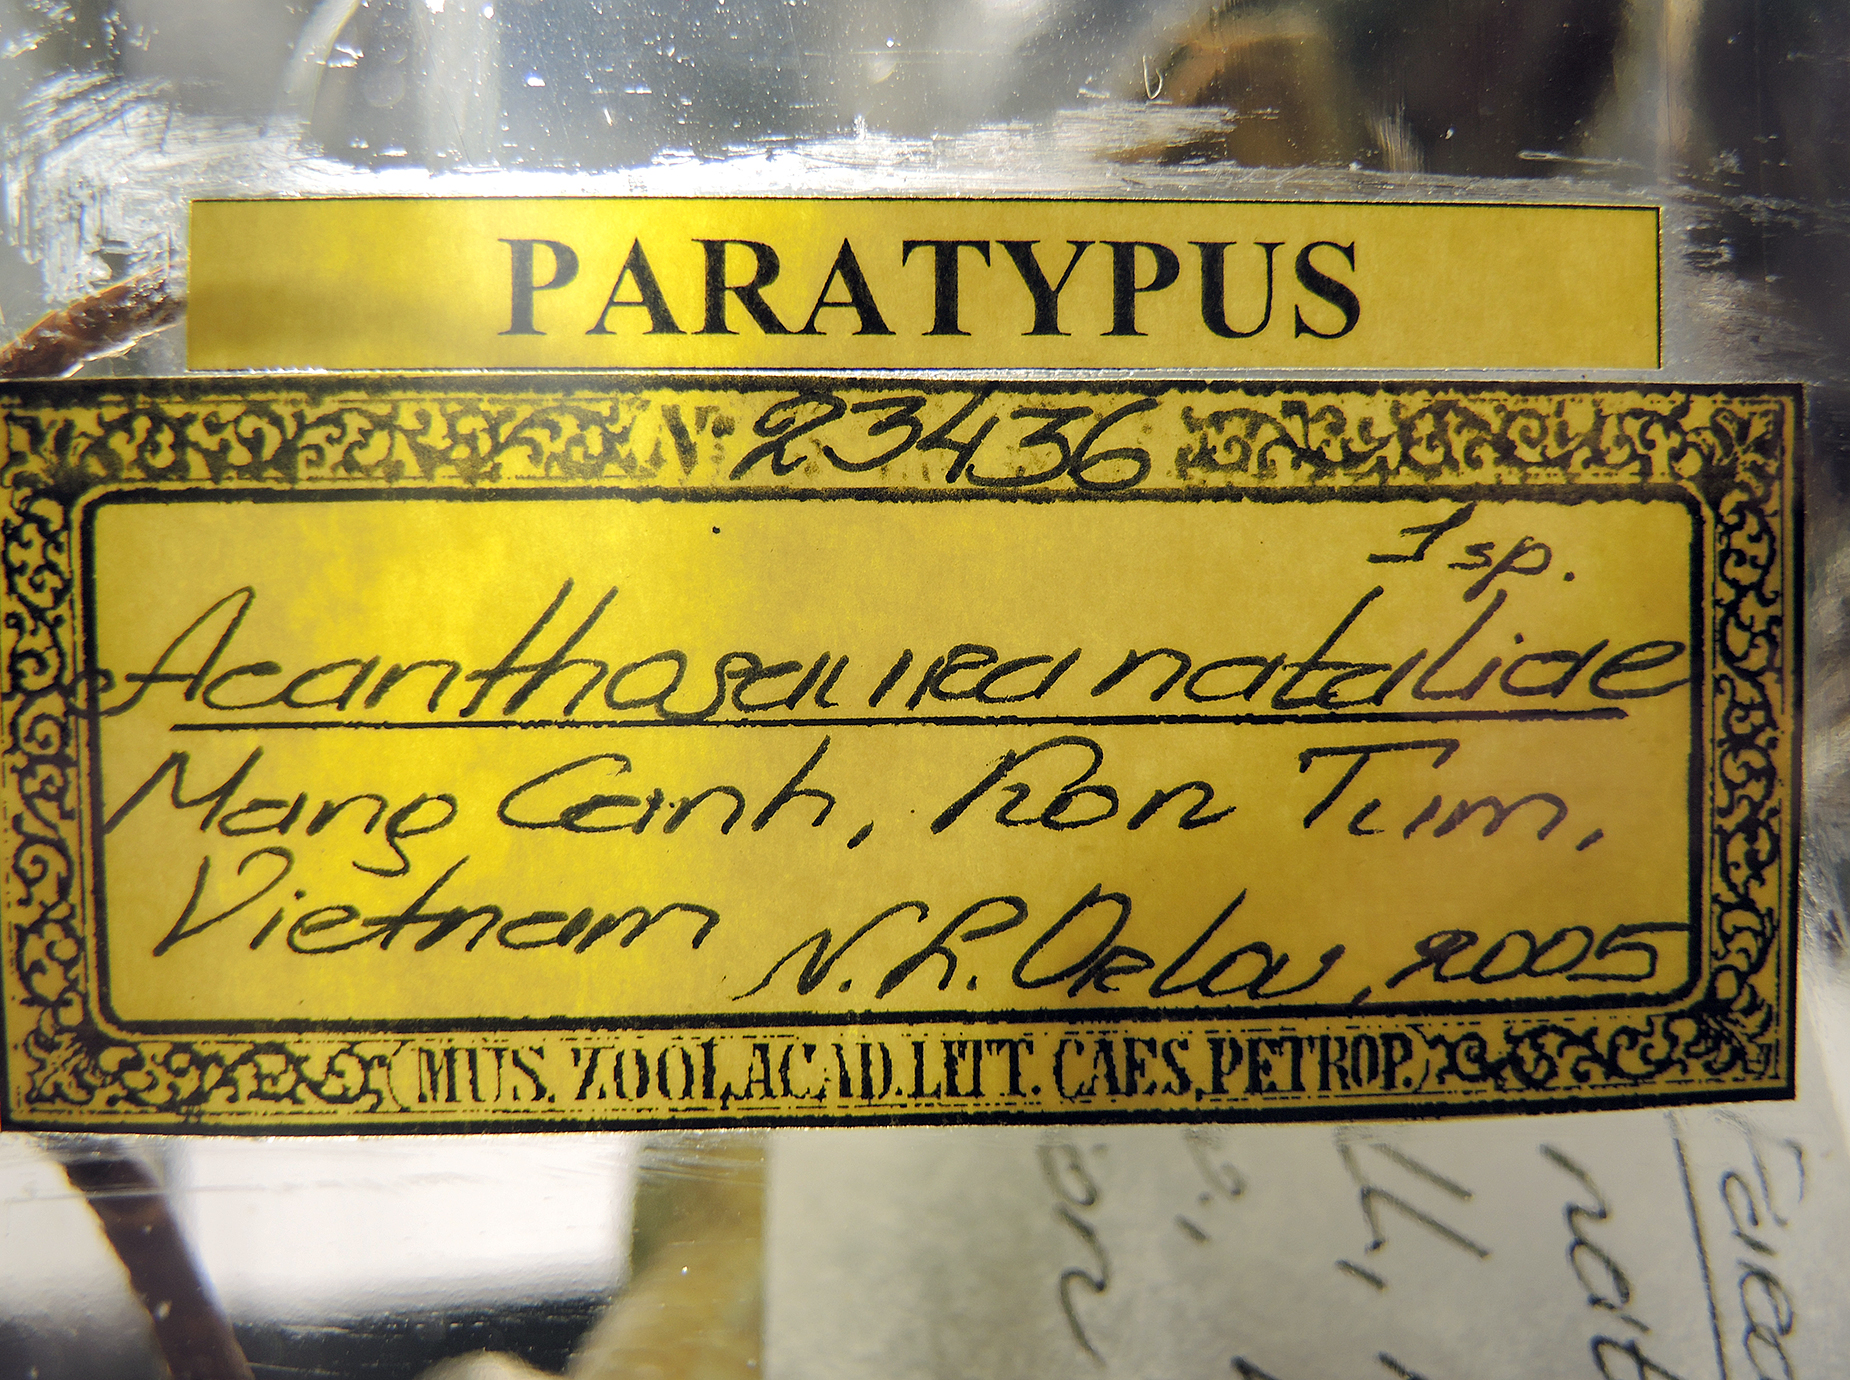 PARATYPUS
№ 23436
1 sp.
Acanthosaura nataliae
Mang Canh, Kon Tum,
Vietnam
N. L. Orlov, 2005
(MUS. ZOOL. ACAD. LITT. CAES. PETROP.)